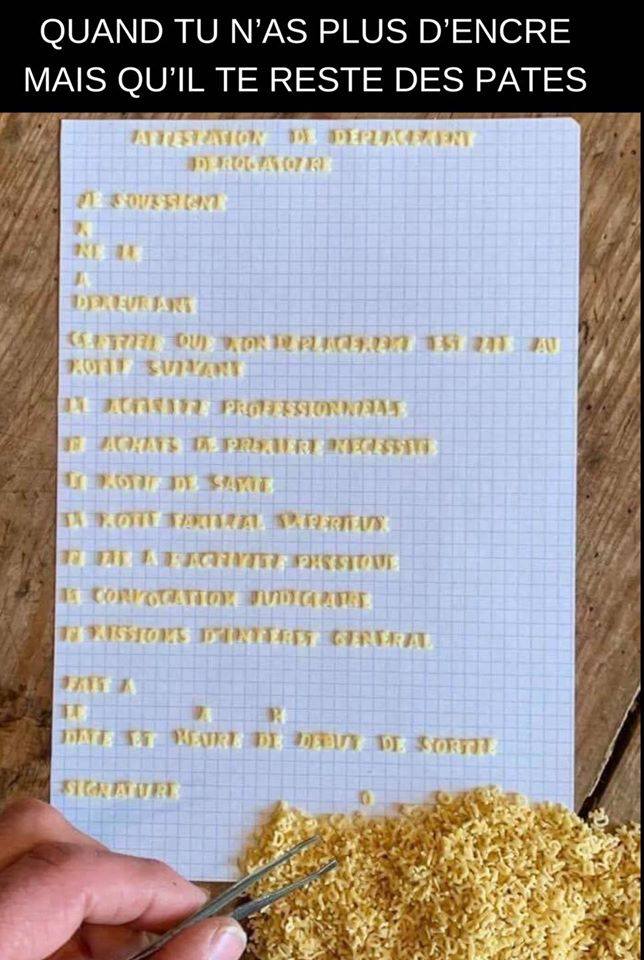 QUAND TU N’AS PLUS D’ENCRE
MAIS QU’IL TE RESTE DES PATES
ATTESTATION DE DEPLACEMENT
DEROGATOIRE
JE SOUSSIGNE
M
NE LE
A
DEMEURANT
CERTIFIE QUE MON DEPLACEMENT EST LIE AU
MOTIF SUIVANT
[] ACTIVITE PROFESSIONNELLE
[] ACHATS DE PREMIERE NECESSITE
[] MOTIF DE SANTE
[] MOTIF FAMILIAL IMPERIEUX
[] LIE A L'ACTIVITE PHYSIQUE
[] CONVOCATION JUDICIAIRE
[] MISSIONS D'INTERET GENERAL
FAIT A
LE A H
DATE ET HEURE DE DEBUT DE SORTIE
SIGNATURE